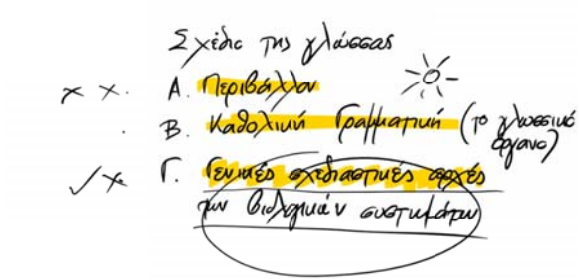 Σχέδιο της γλώσσας
x x. Α. Περιβάλλον
. Β. Καθολική Γραμματική (το γλωσσικό όργανο)
✓ x Γ. Γενικές σχεδιαστικές αρχές
των βιολογικών συστημάτων